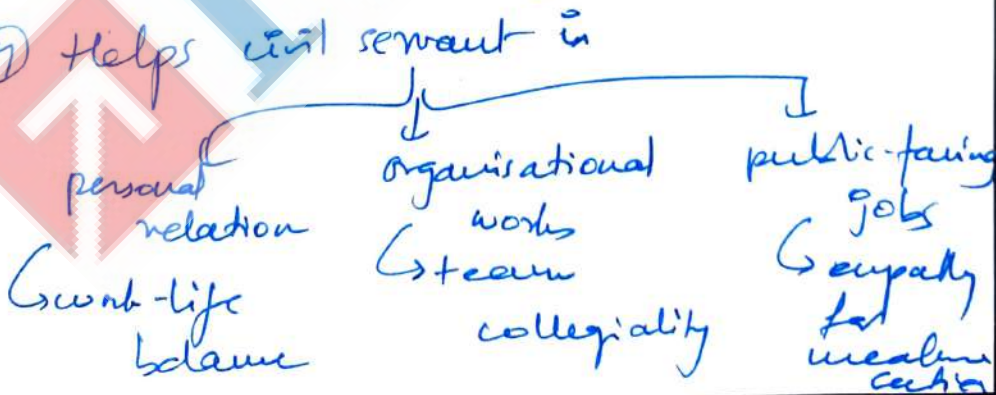 Helps civil servant in
personal relation
↳ work-life balance
organisational works
↳ team collegiality
public-facing jobs
↳ empathy for weaker section